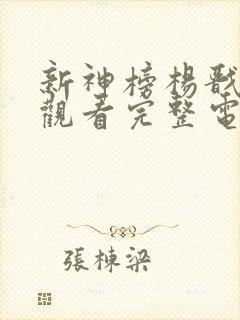 新神榜楊戩
觀看完整電
張棟梁